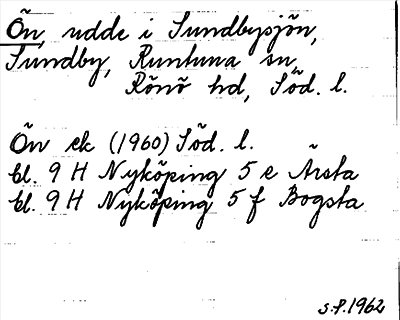 Ön, udde i Sundbysjön,
Sundby, Runtuna sn,
Rönö hd, Söd. l.
Ön ek (1960) Söd. l.
bl. 9 H Nyköping 5 e Årsta
bl. 9 H Nyköping 5 f Bogsta
S.P. 1962